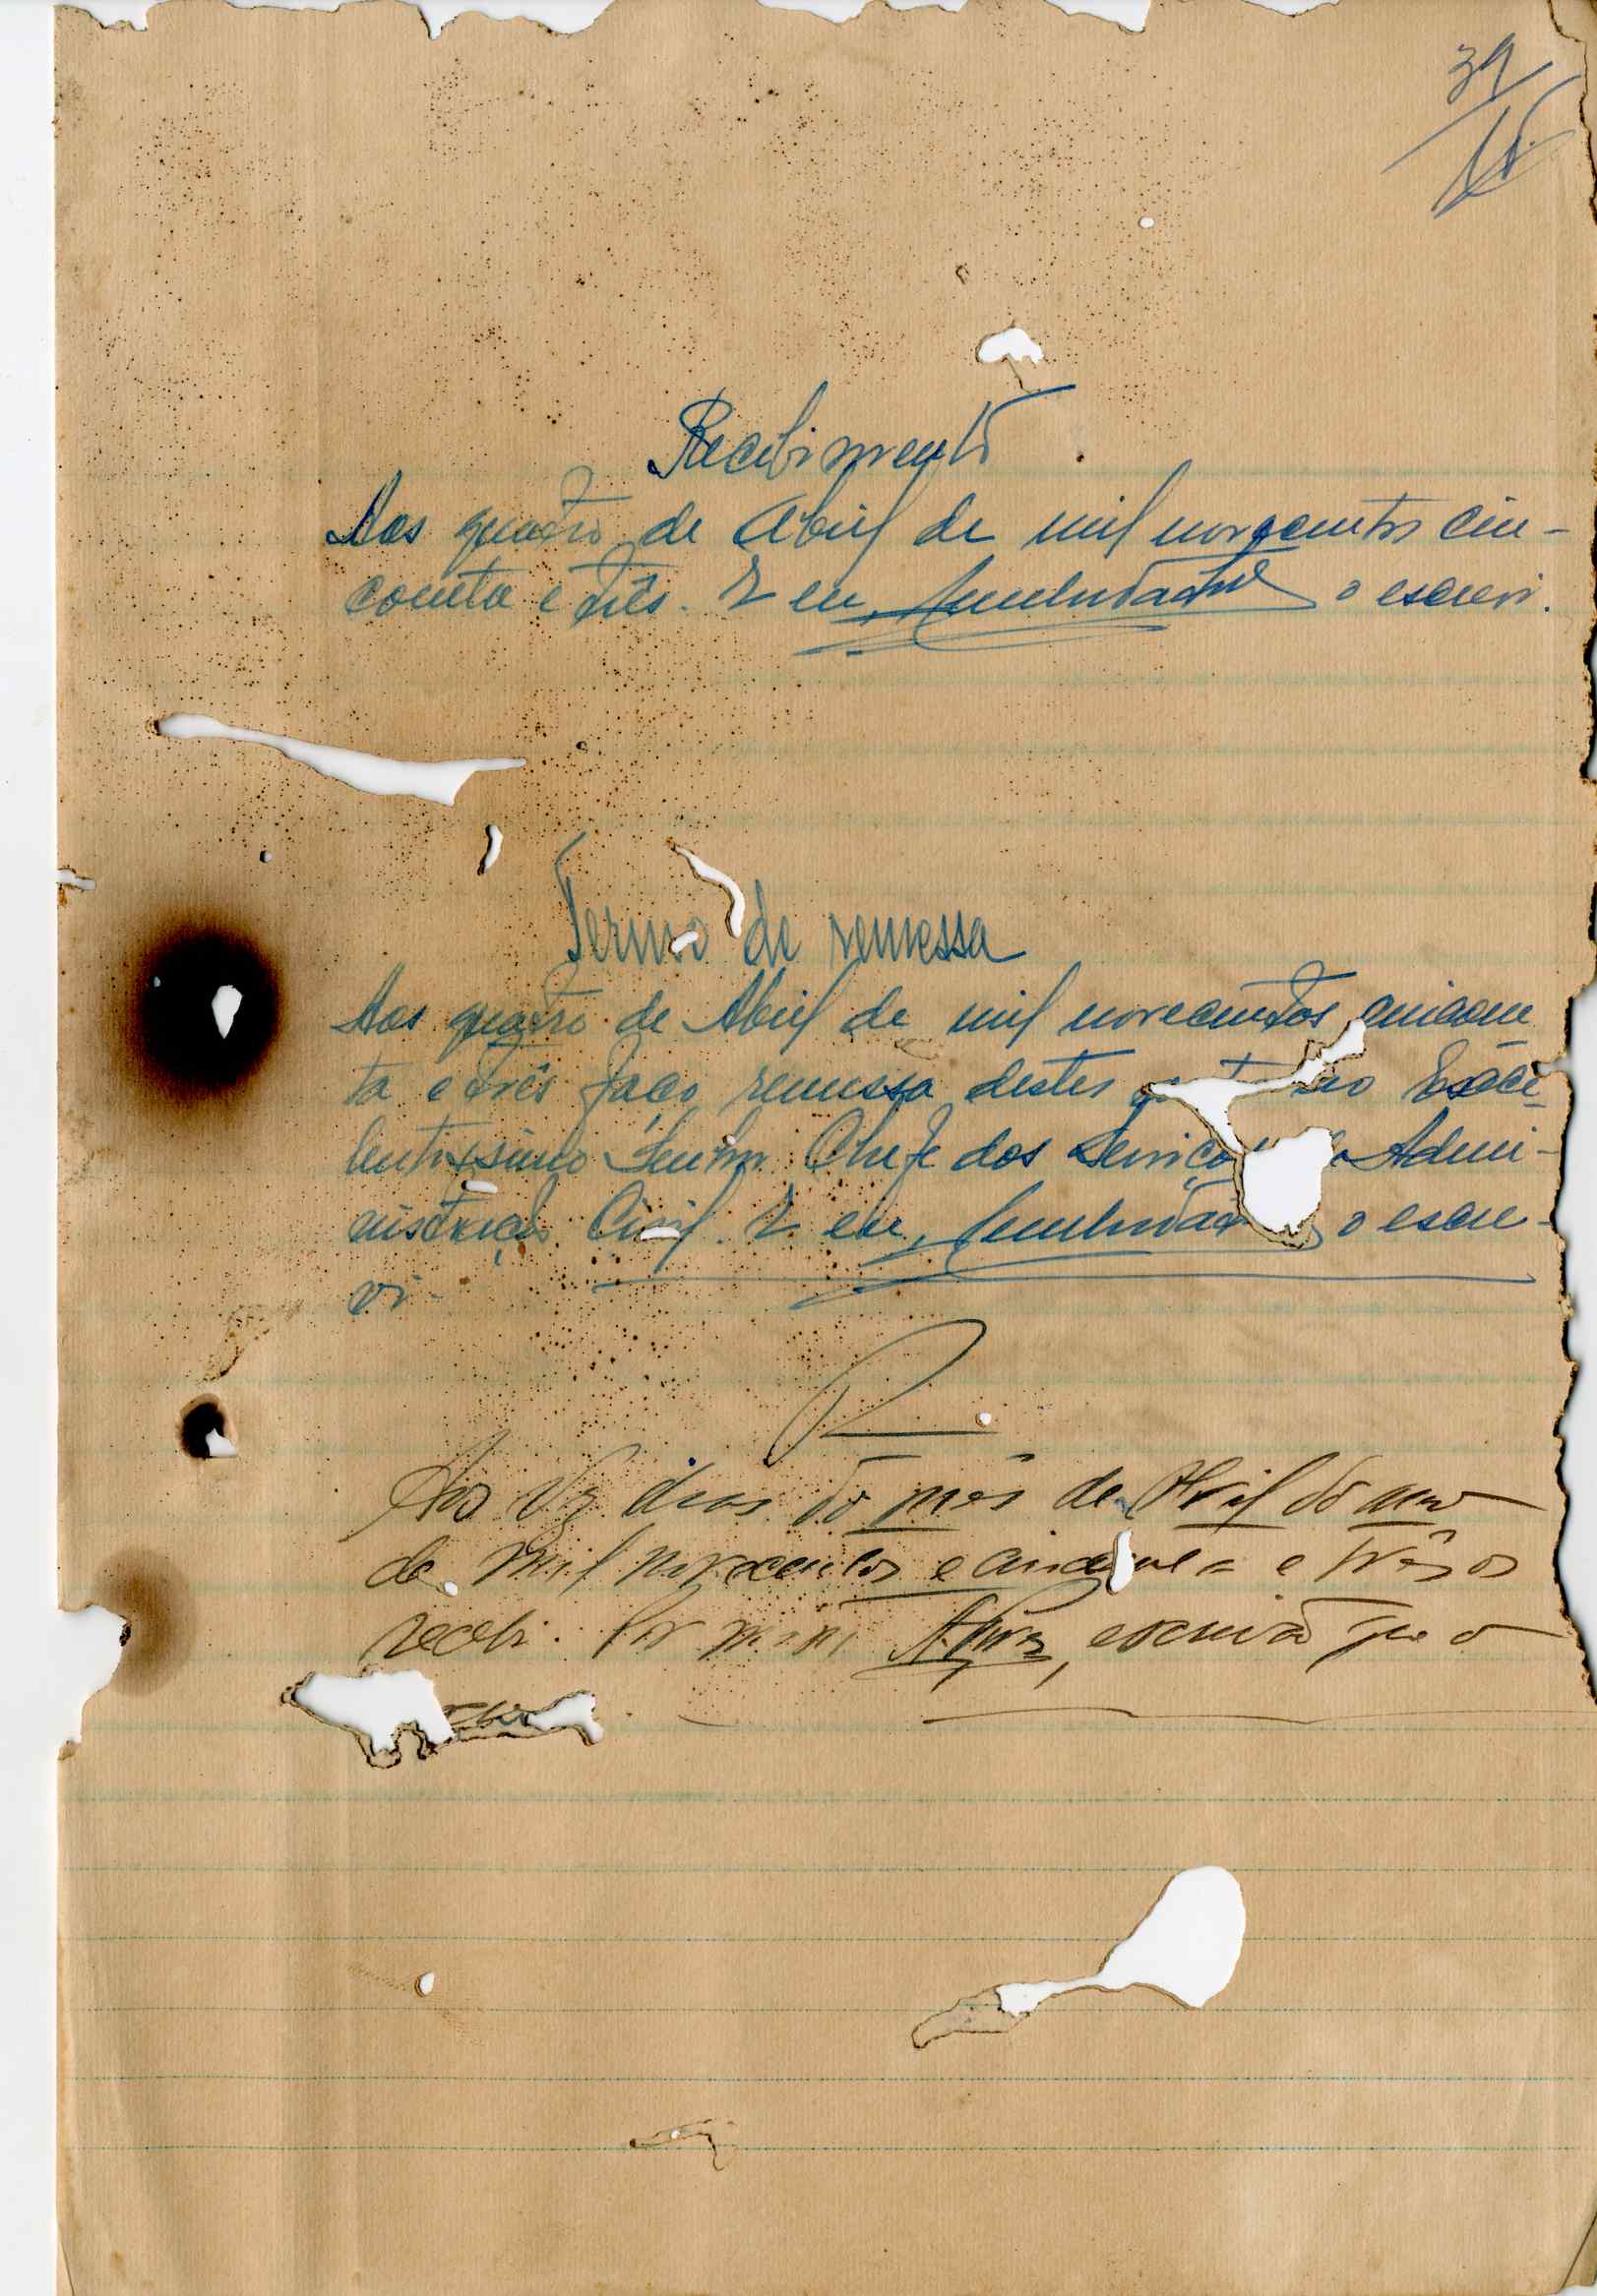 39
Recebimento
Aos quatro de Abril de mil novecentos cin-
coenta e três. E eu, o escrevi.
Termo de remessa
Aos quatro de Abril de mil novecentos cincoen
ta e três faço remessa destes ao Exce-
lentissimo Senhor Chefe dos Serviço Admi-
nistração Civil. E eu, o escre-
vi-
R
Aos dias do mês de Abril do ano
de mil novecentos e cincoenta e três os
recebi. Por mim A. Pires, escrivão que o